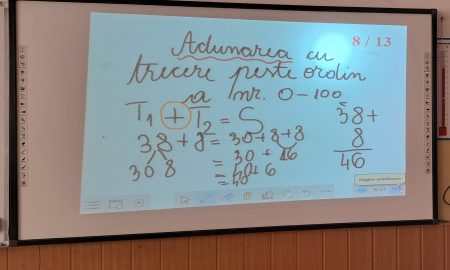 8 / 13
Adunarea cu
trecere peste ordin
a nr. 0-100
T1 + T2 = S
38+8 = 30+8+8
30 8
= 30 + 16
= 40 + 6
38+
8
46
Pagina următoare
8/13